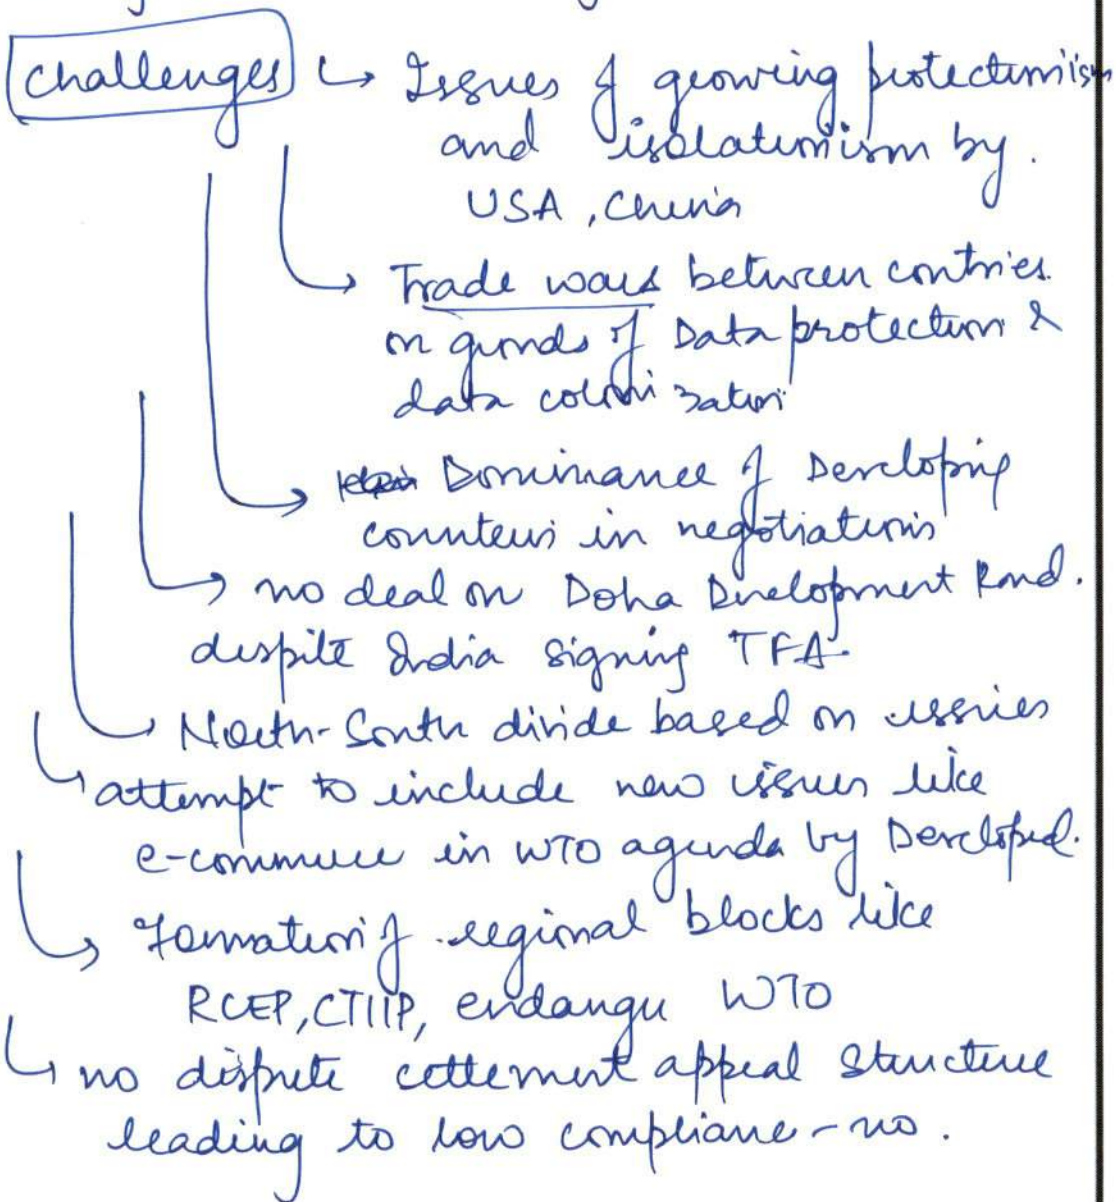 challenges ↳ Issues of growing protectionism
and isolationism by.
USA, China
→ Trade wars between contries
on grounds of Data protection &
data colonization
→ Dominance of Developing
counteries in negotiations
→ no deal on Doha Development Round.
despite India signing TFA.
→ North-South divide based on issues
↳ attempt to include new issues like
e-commerce in WTO agenda by Developed.
→ Formation of regional blocks like
RCEP, CTIIP, endanger WTO
↳ no dispute settlement appeal structure
leading to low compliance - no.